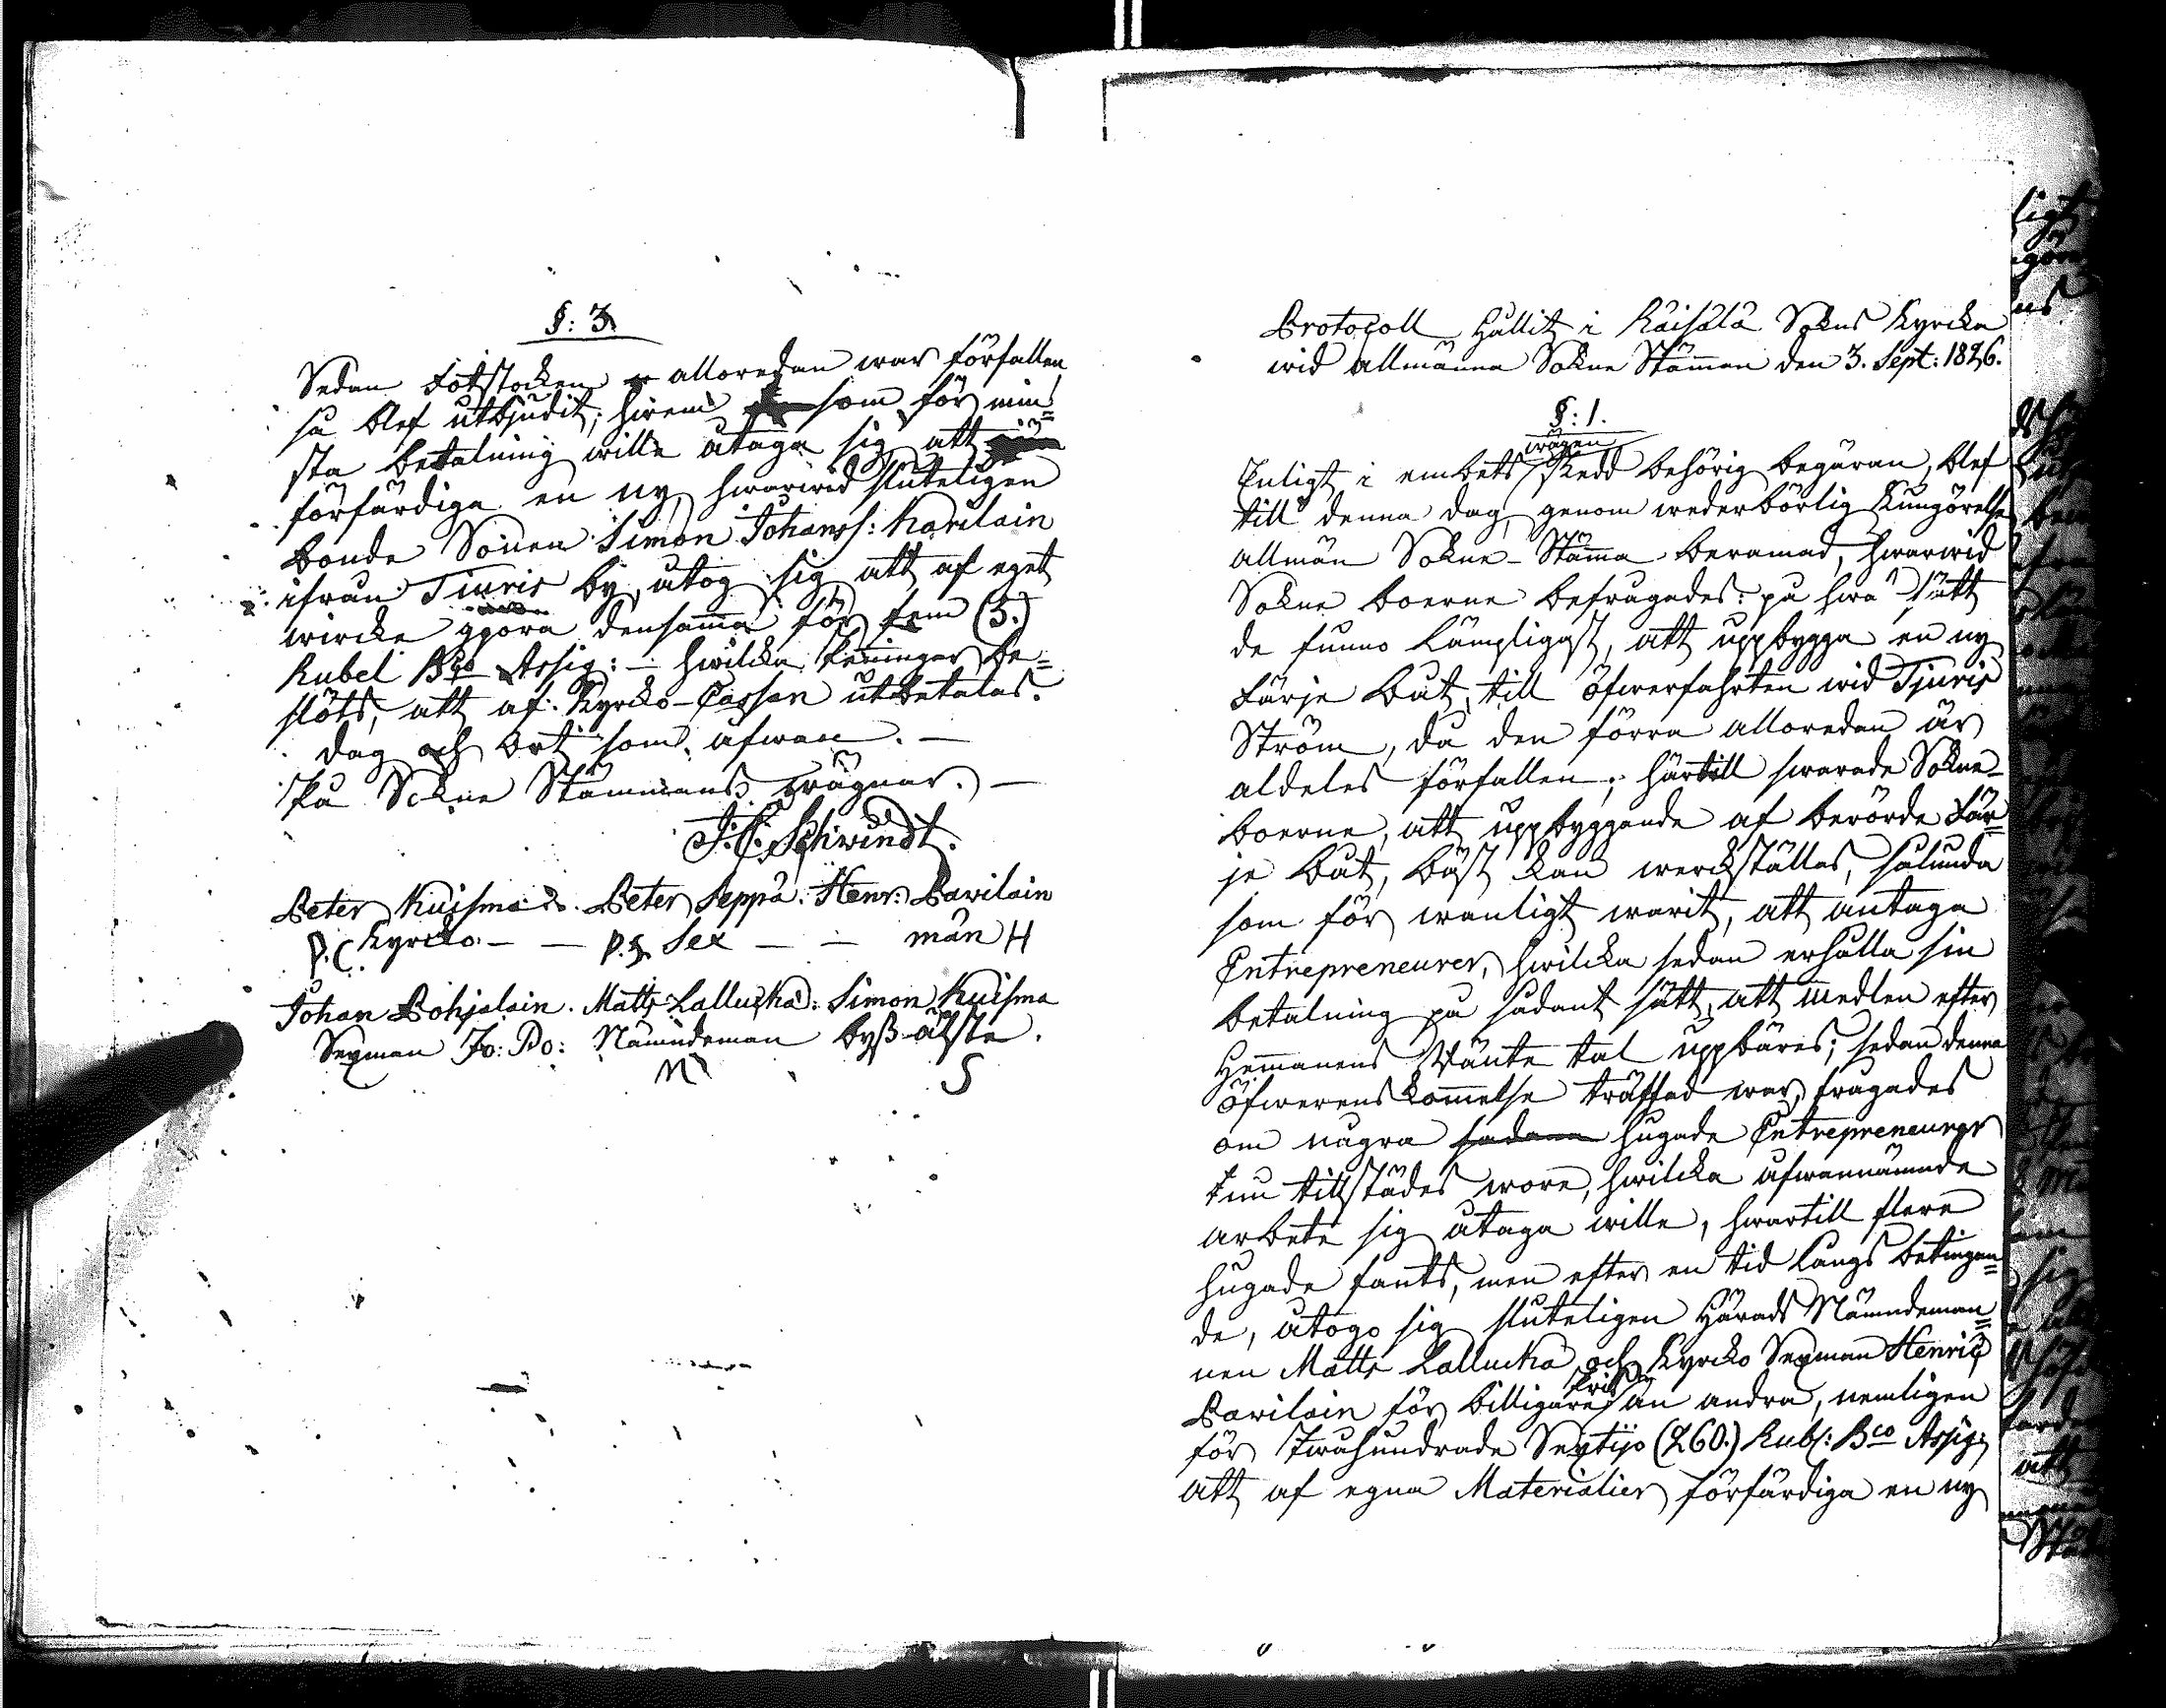 §: 3
Sedan Fotstocken alloredan war förfallen
så blef utbjudit, hwem som för min=
sta betalning wille åtaga sig att
förfärdiga en ny, hwarwid sluteligen
bonde Sonen Simon Johanss: Karilain
ifrån Tiuris by, åtog sig att af eget
wircke gjöra densamma för fem (5.)
Rubel Bco Assig: – hwilcka Penningar be=
slöts, att af Kyrcko-Cassan utbetalas.
Dag och Ort som ofwan. –
På Sokne Stämmans wägnar. –
J. C. Schwindt.
Peter Kuisma. Peter Seppä. Henr: Pavilain
P. C. Kyrcko – – P. S. Sex – – män H
Johan Pohjalain. Matts Lallucka. Simon Kuisma
Sexman Jo: Po: Nämndeman byß-älste.
M S
Protocoll hållit i Räisälä Sokns Kyrcka
wid allmänna Sokne Stämman den 3. Sept: 1826.
§: 1.
wägen
Enligt i embets skedd behörig begäran, blef
till denna dag, genom wederbörlig Kungörelse
allmän Sokne-Stämma beramad, hwarwid
Sokne boerne befrågades: på hwa sätt
de funno Lämpligast, att uppbygga en ny
Färje Båt, till öfwerfahrten wid Tjuris
Ström, då den förra alloredan är
aldeles förfallen; härtill swarade Sokne-
boerne, att uppbyggande af berörde Fär=
je båt, bäst kan werckställas, sålunda
som för wanligt warit, att antaga
Entrepreneurer, hwilcka sedan erhålla sin
betalning på sådant sätt, att medlen efter
Hemmanens Mante tal uppbäres; sedan denna
öfwerenskommelse träffad war, frågades
om några sadana hugade Entrepreneurer
nu tillstädes wore, hwilcka ofwannämnde
arbete sig åtaga wille, hwartill flere
hugade fants, men efter en tid Långs betingan=
de, åtogo sig sluteligen Härads Nämndeman=
nen Matts Lallucka och Kyrcko Sexman Henric
Pris
Pavilain för billigare än andra, nemligen
för Twåhundrade Sextijo (260.) Rubl: Bco Assig:
att af egna Materialier förfärdiga en ny